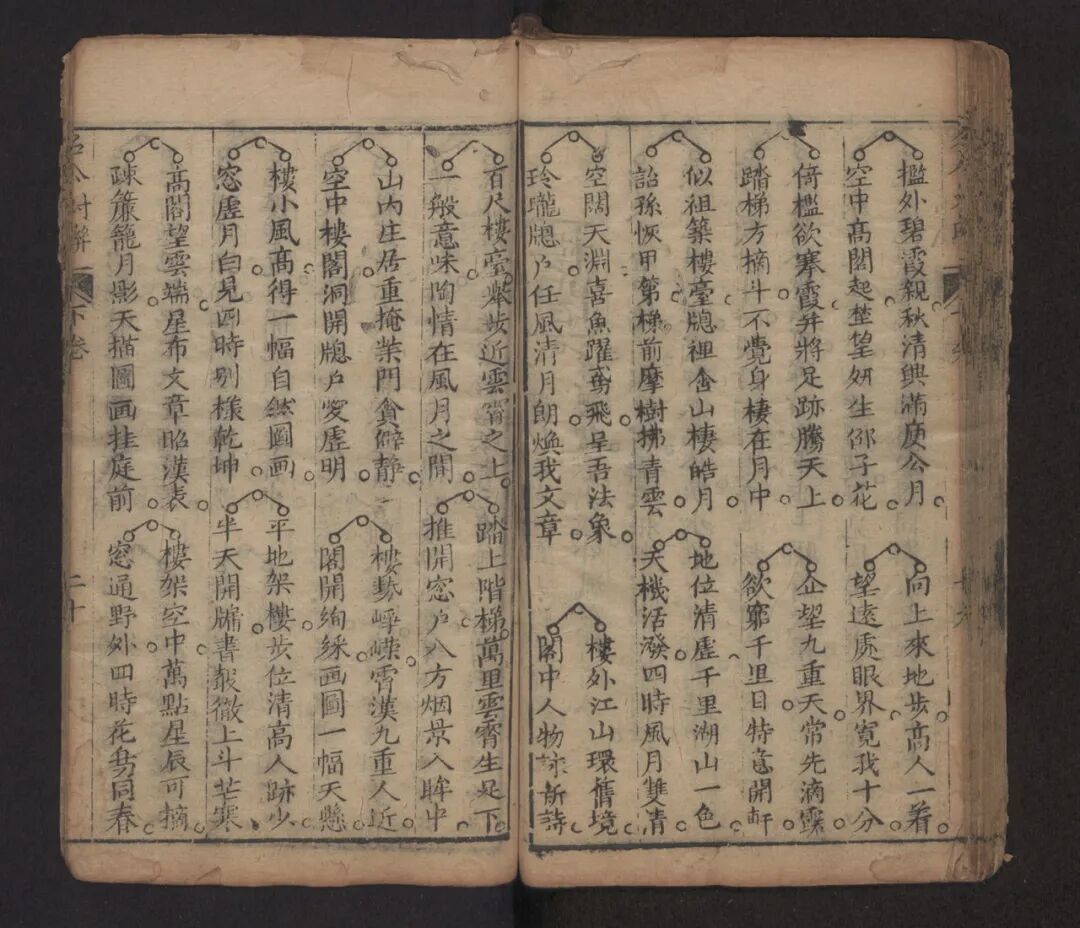 檻外碧霞親秋清興滿庾公月
空中高閣起楚望妍生邵子花
向上來地步高人一着
望遠處眼界寛我十分
倚檻欲搴霞并將足跡騰天上
踏梯方摘斗不覺身棲在月中
企望九重天常先滴露
欲窮千里目特意開軒
似祖築樓臺牕裡金山棲皓月
詒孫恢甲第梯前摩樹拂青雲
地位清虛千里湖山一色
天機活潑四時風月雙清
空闊天淵喜魚躍鳶飛呈吾法象
玲瓏牕户任風清月朗煥我文章
樓外江山環舊境
閣中人物詠新詩
百尺樓臺舉步近雲霄之上
一般意味陶情在風月之間
踏上階梯萬里雲霄生足下
推開窓户八方烟景入眸中
山内庄居重掩柴門貪僻静
空中樓閣洞開牕户愛虛明
樓勢崢嶸霄漢九重人近
閣開絢綵画圖一幅天懸
樓小風高得一幅自然圖画
窓虛月白見四時别樣乾坤
平地架樓步位清高人跡少
半天開牖書聲徹上斗芒寒
高閣望雲端星布文章昭漢表
疎簾籠月影天描圖画挂庭前
樓架空中萬點星辰可摘
窓通野外四時花鳥同春
下卷
二十